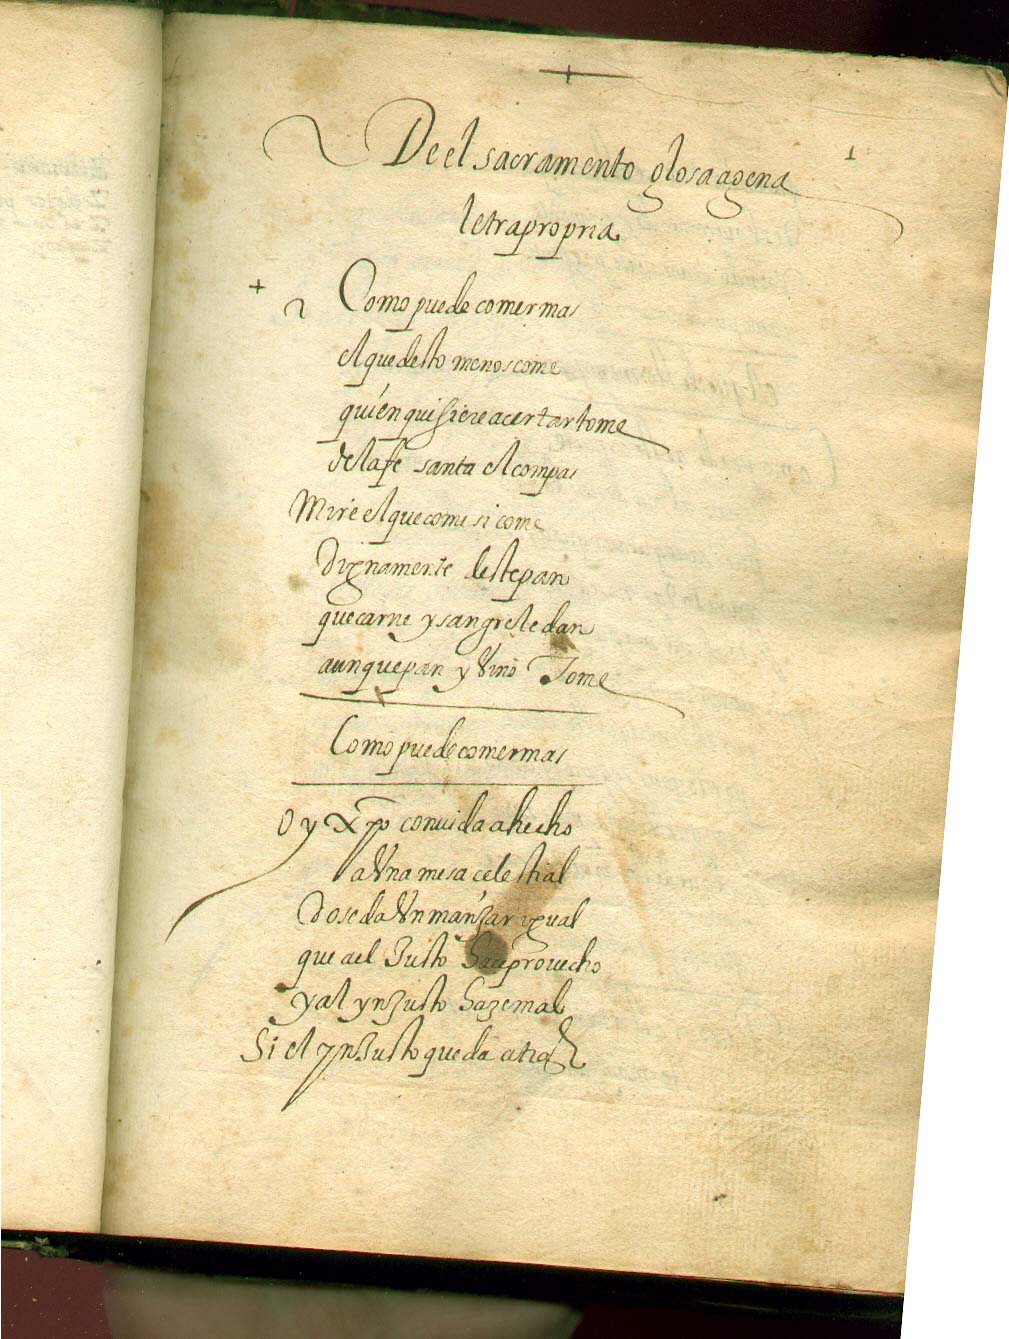 1
De el sacramento glosa agena
letra propria
Como puede comer mas
el que desto menos come
quien quisiere acertar tome
de la fe santa el compas
Mire el que come si come
dignamente deste pan
que carne y sangre le dan
aunque pan y vino Tome
Como puede comer mas
Oy Xpo convida a hecho
a Vna mesa celestial
Do se da Vn manjar igual
que a el Justo haze provecho
y al ynJusto haze mal
Si el ynJusto queda atras